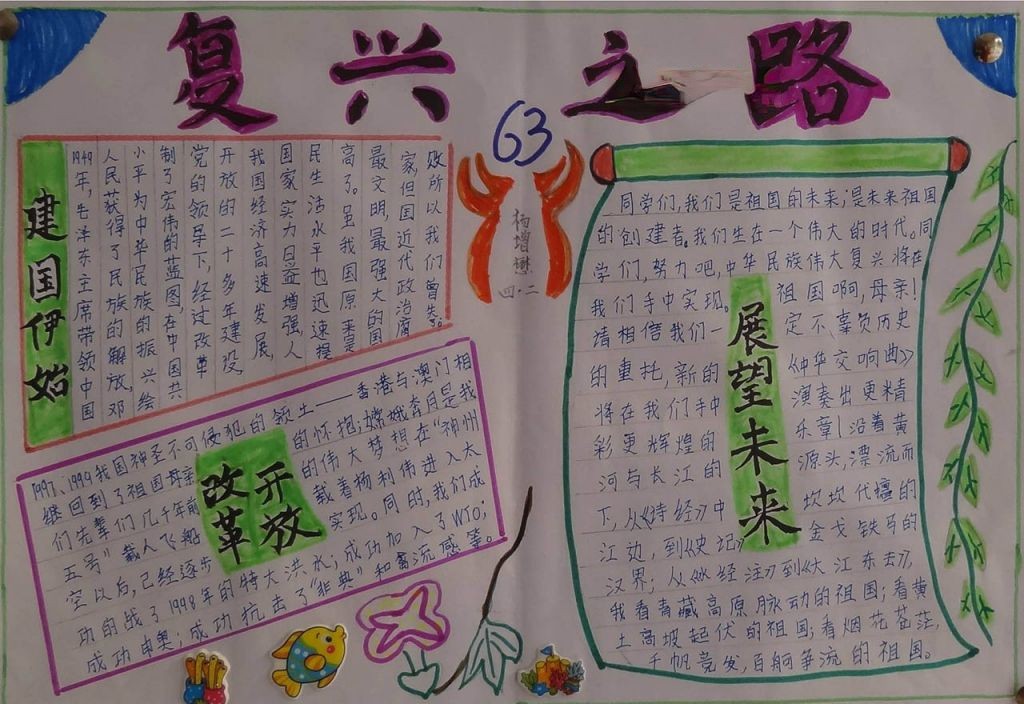 复兴之路
63
杨增懋
四·二
建国伊始
1949年,毛泽东主席带领中国
人民获得了民族的解放,邓
小平为中华民族的振兴绘
制了宏伟的蓝图在中国共
党的领导下,经过改革
开放的二十多年建设,
我国经济高速发展,
国家实力日益增强人
民生活水平也迅速提
高了。虽我国原来是
最文明,最强大的国
家,但国近代政治腐
败所以我们曾失。
改革
开放
1997、1999我国神圣不可侵犯的领土——香港与澳门相
继回到了祖国母亲的怀抱;嫦娥奔月是我
们先辈们几千年前的伟大梦想在“神州
五号”载人飞船载着杨利伟进入太
空以后,已经逐步实现。同时,我们成
功的战了1998年的特大洪水;成功加入了WTO;
成功申奥;成功抗击了“非典”和禽流感等。
展望未来
同学们,我们是祖国的未来;是未来祖国
的创建者,我们生在一个伟大的时代。同
学们,努力吧,中华民族伟大复兴将在
我们手中实现。祖国啊,母亲!
请相信我们一定不辜负历史
的重托,新的《中华交响曲》
将在我们手中演奏出更精
彩更辉煌的乐章!沿着黄
河与长江的源头,漂流而
下,从《诗经》中坎坎伐檀的
江边,到《史记》金戈铁马的
汉界;从《水经注》到《大江东去》,
我看青藏高原脉动的祖国;看黄
土高坡起伏的祖国;看烟花苍茫,
千帆竞发,百舸争流的祖国。